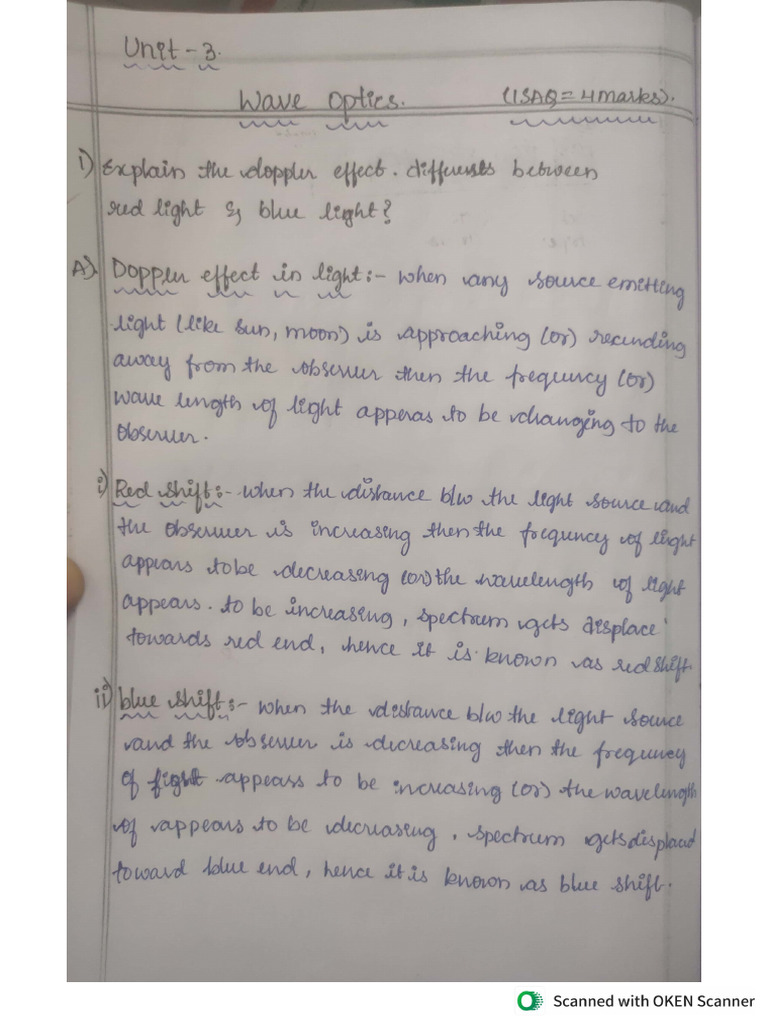 Unit - 3.
Wave Optics. (1SAQ = 4 marks).
1) Explain the doppler effect. differents between
red light & blue light?
A). Doppler effect in light :- when any source emitting
light (like sun, moon) is approaching (or) recunding
away from the observer then the frequncy (or)
wave length of light apperas to be changing to the
observer.
i) Red shift :- when the distance b/w the light source and
the observer is increasing then the frequncy of light
appears tobe decreasing (or) the wavelength of light
appears. to be increasing, spectrum gets displace
towards red end, hence it is known as red shift.
ii) blue shift :- when the distance b/w the light source
and the observer is decreasing then the frequncy
of light appears to be increasing (or) the wavelength
of appears to be decreasing, spectrum gets displaced
toward blue end, hence it is known as blue shift.
Scanned with OKEN Scanner